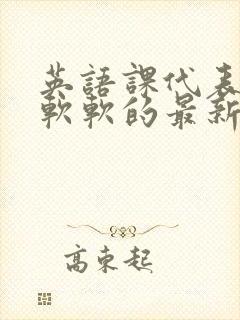 英語課代表
軟軟的最新
高東起